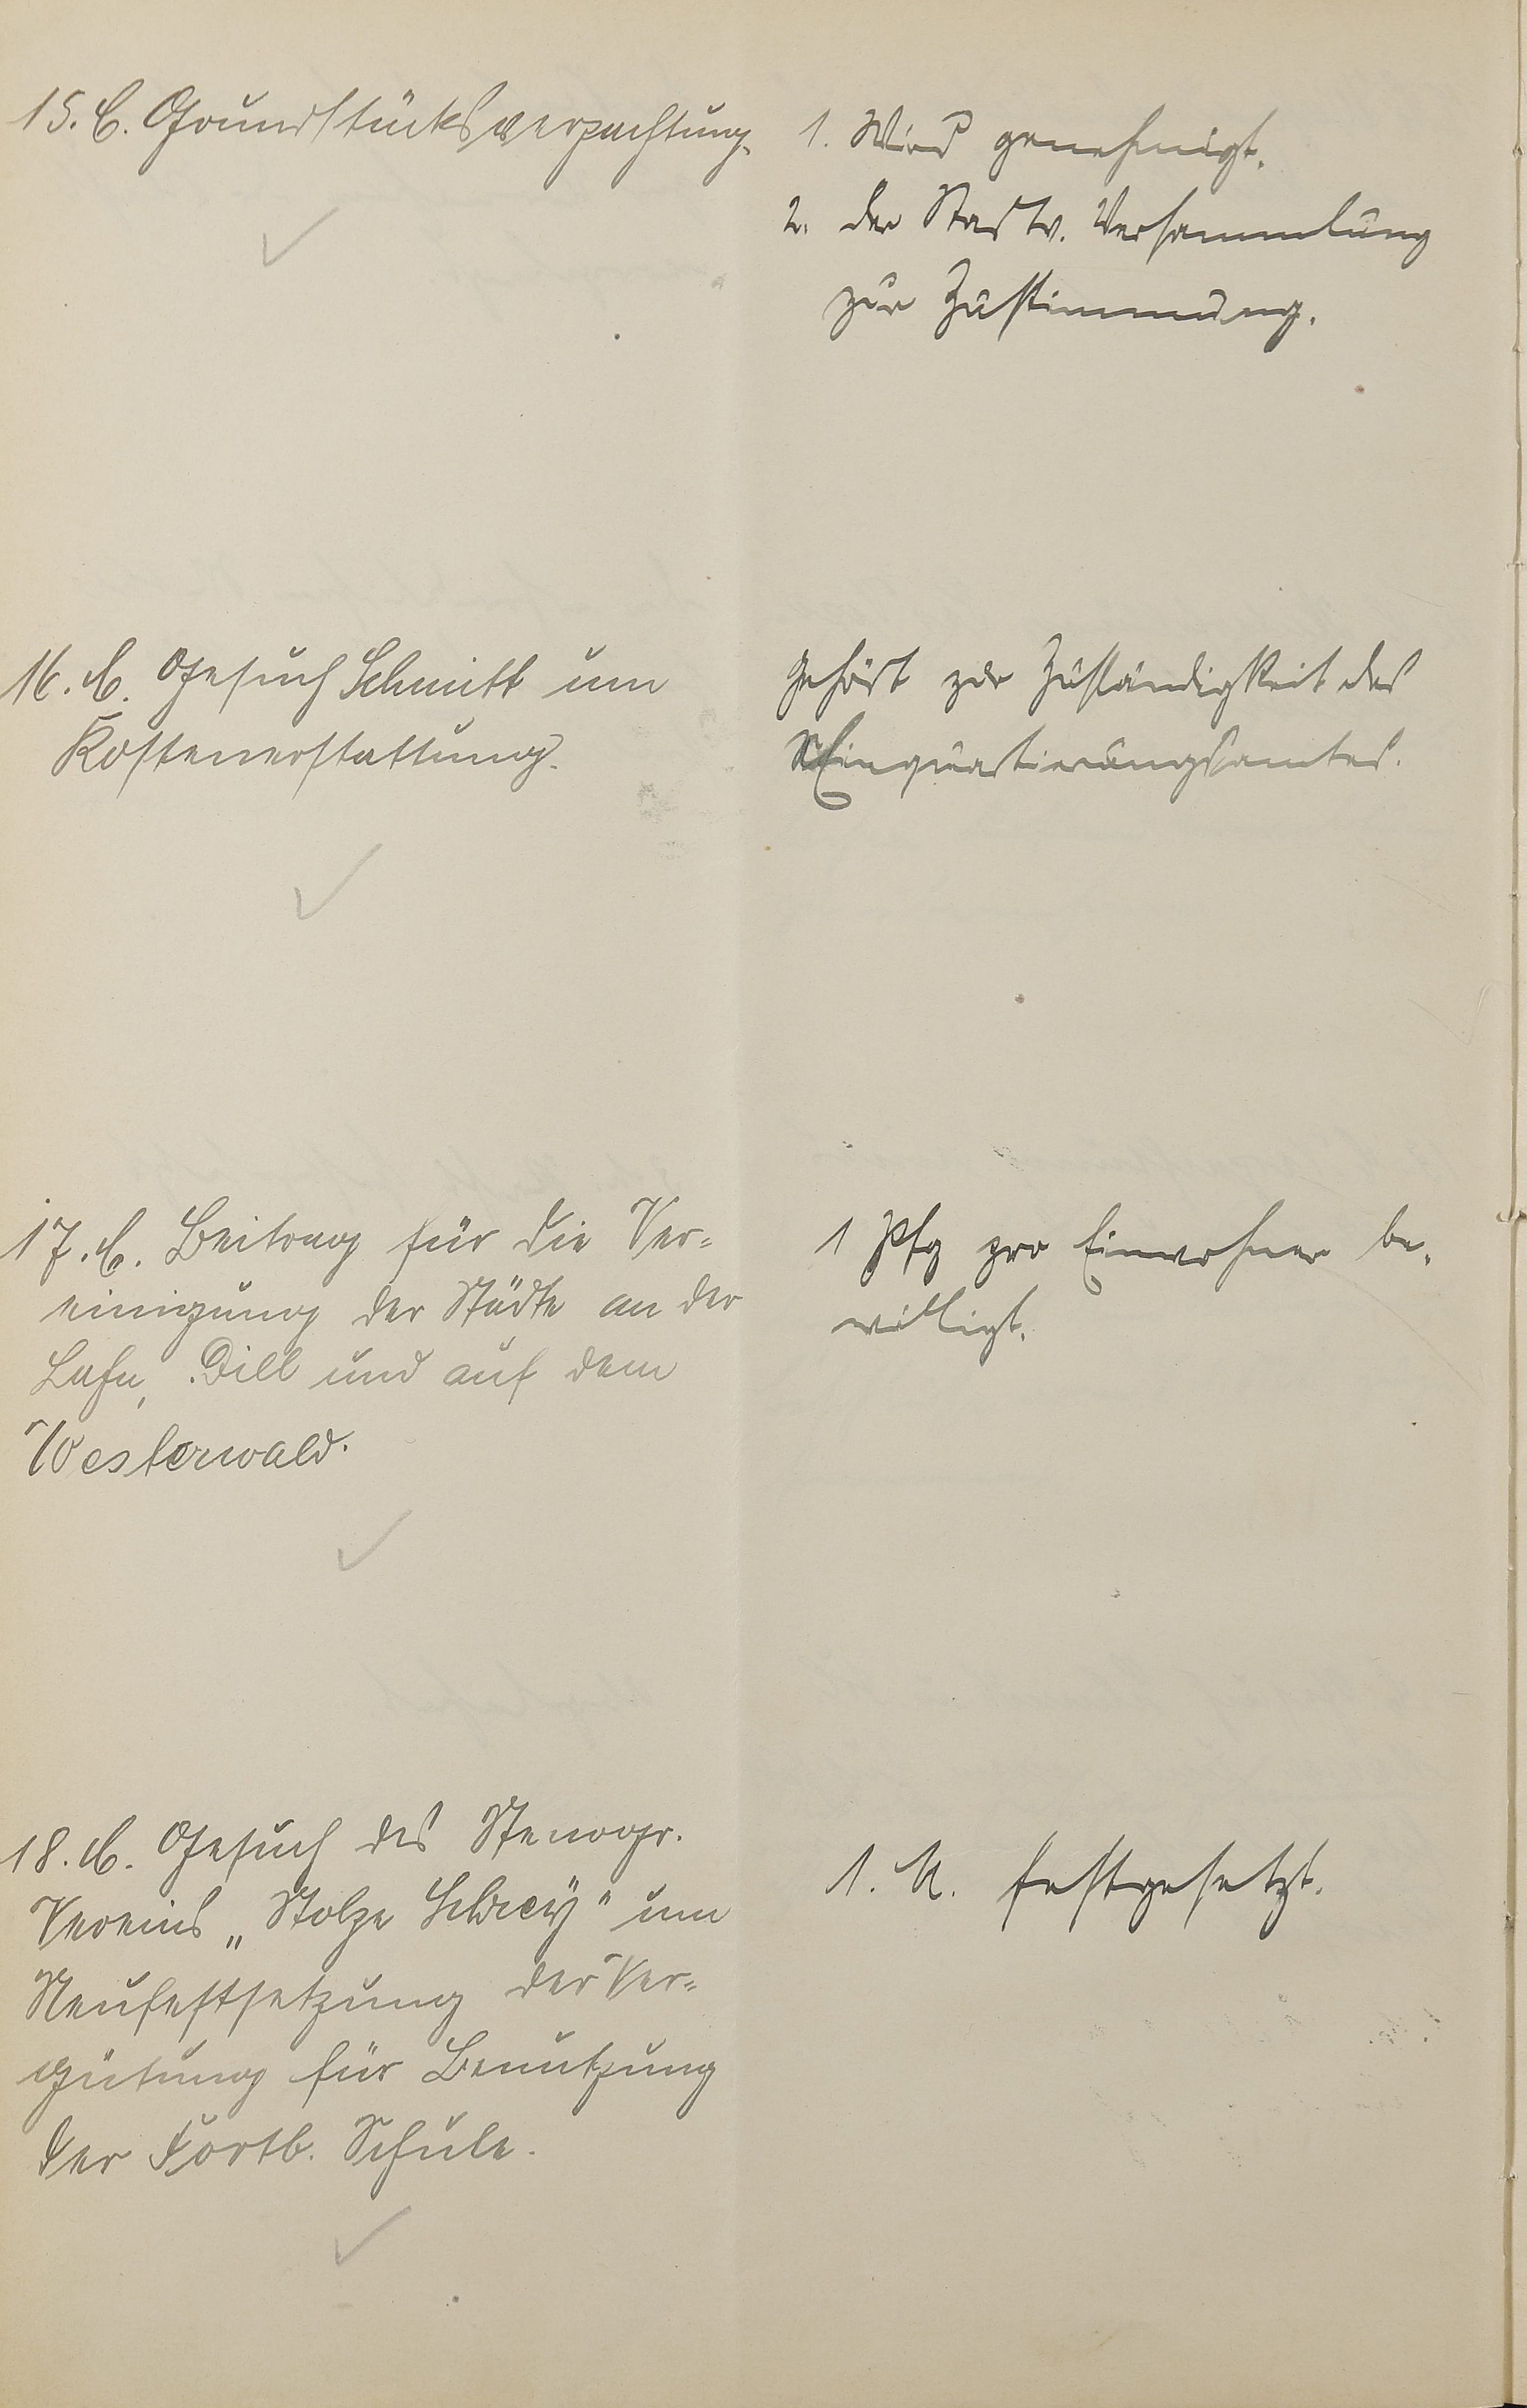 15. C. Grundstücksverpachtung.
1. Wird genehmigt.
2. der Stadtv. Versammlung
zur Zustimmung.
16. C. Gesuch Schmitt um
Kostenerstattung.
Gehört zur Zuständigkeit des
Einquartierungsamtes.
17. C. Beitrag für die Ver=
einigung der Städte an der
Lahn, Dill und auf dem
Westerwald.
1 Pfg pro Einwohner be-
willigt.
18. C. Gesuch des Stenogr.
Vereins „Stolze Schrey" um
Neufestsetzung der Ver=
gütung für Benutzung
der Fortb. Schule.
1. M. festgesetzt.